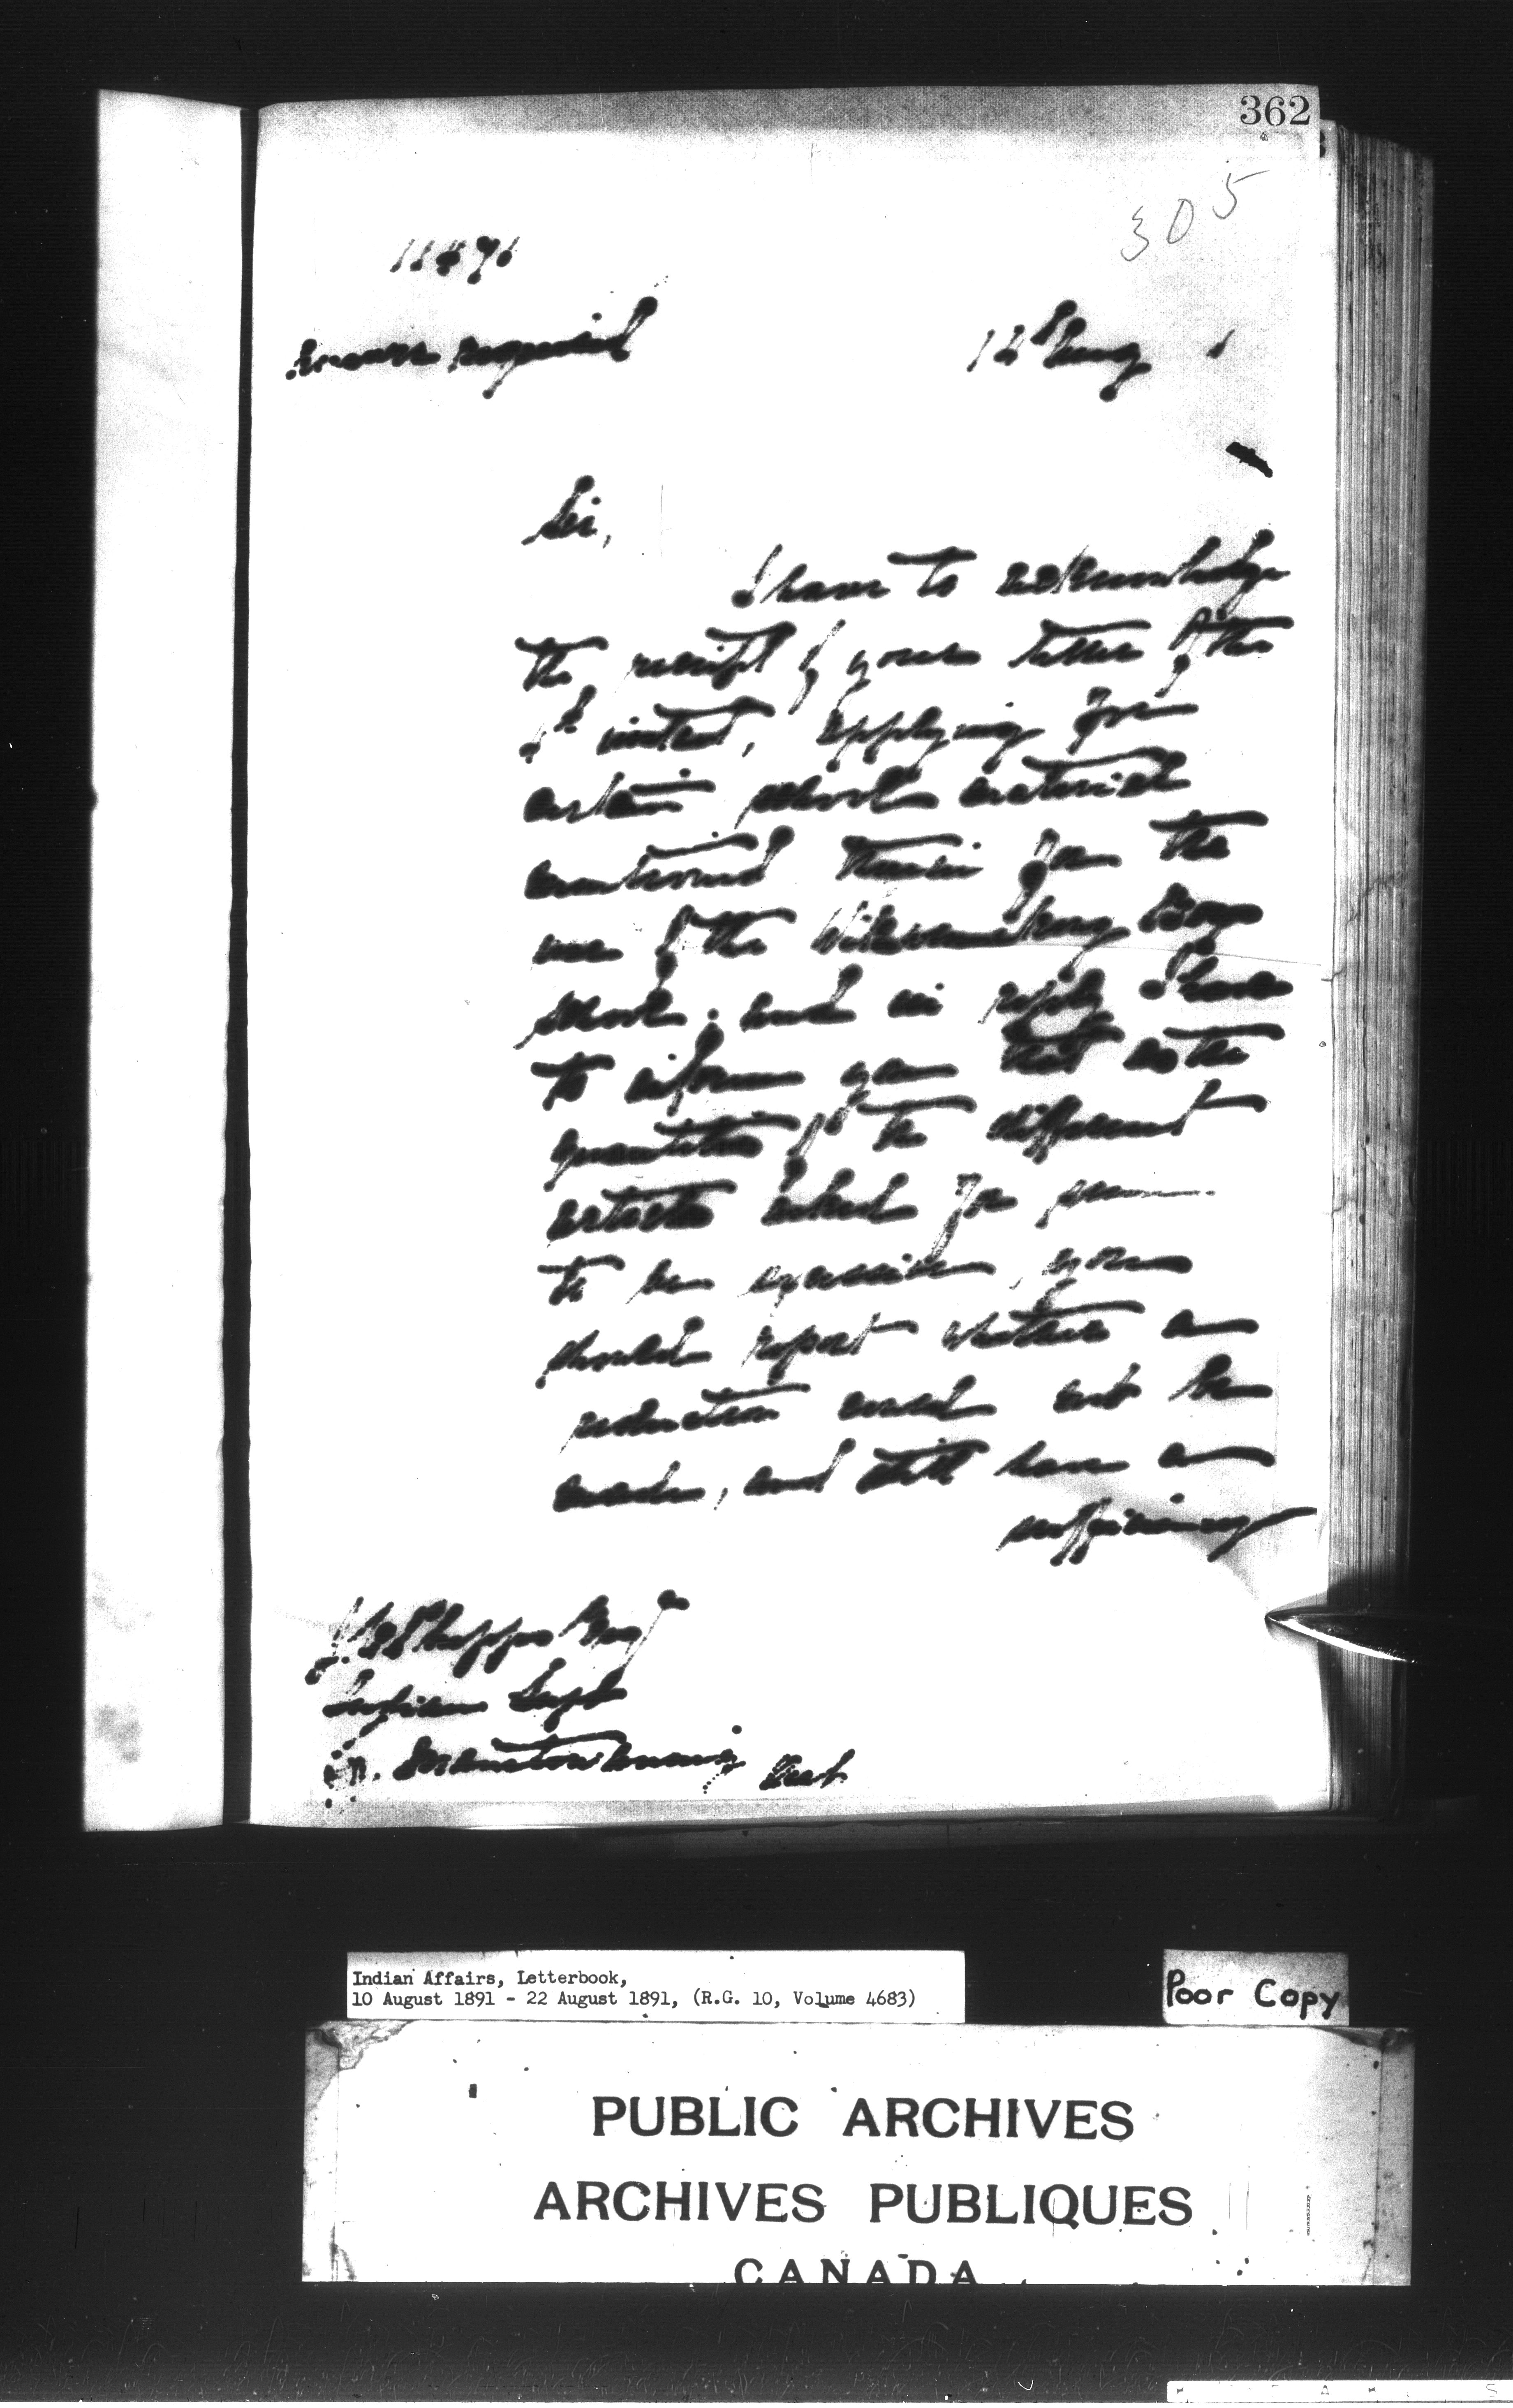 362
305
11491
Answer required
12th Aug 1
Sir,
I have to acknowledge
the receipt of your letter of the
inst, applying for
certain school material
mentioned therein for the
use of the Wikwemikong Boys
School; and in reply I have
to inform you that as the
quantities of the different
articles asked for seem
to be excessive, you
should report whether a
reduction could not be
made, and still have a
sufficiency
Phipps Esq
Indian Supt
Manitowaning Ont
Indian Affairs, Letterbook,
10 August 1891 - 22 August 1891, (R.G. 10, Volume 4683)
Poor Copy
PUBLIC ARCHIVES
ARCHIVES PUBLIQUES
CANADA